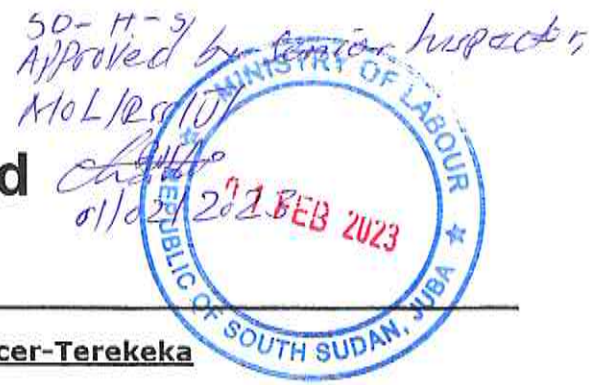 SO-H-S/
Approved by Senior Inspector,
MOL/RSS/
d
01/02/2023
MINISTRY OF LABOUR
FEB 2023
REPUBLIC OF SOUTH SUDAN, JUBA
cer-Terekeka